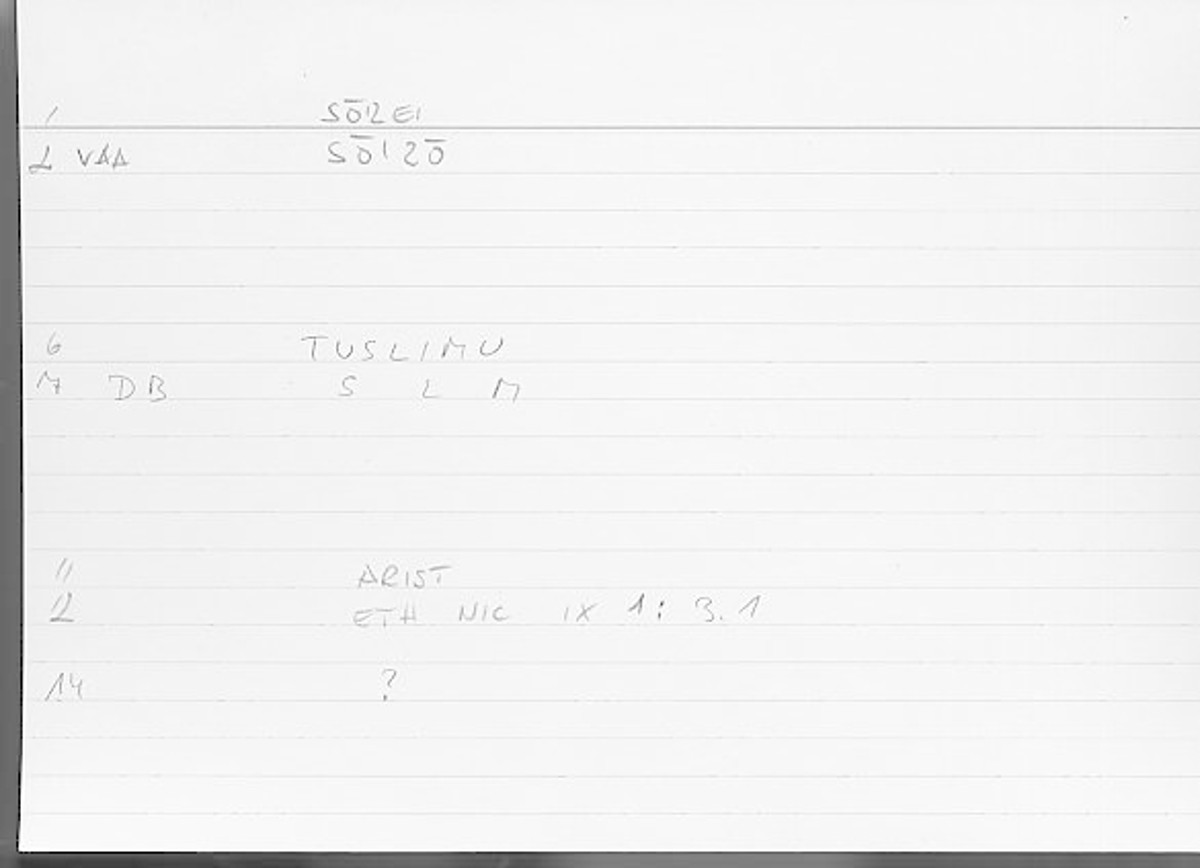 1 SŌIZEI
2 VAA SŌIZŌ
6 TUSLIMU
7 DB S L M
11 ARIST
12 ETH NIC IX 1: 3.1
14 ?